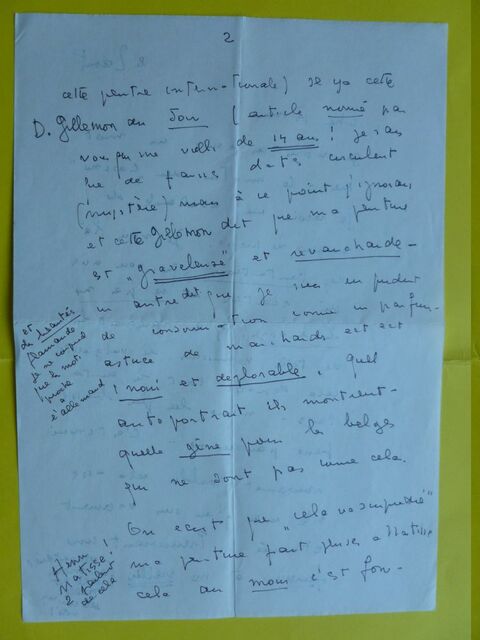 2
cette peintre internationale) Il y a cette
D. Gillemon du Soir (article nommé par
de 14 ans ! Je sais
que de fausses dates circulent
(mystère) mais à ce point j'ignorais
et cette Gillemon dit que ma peinture
est "graveleuse" et revancharde -
un autre dit que je suis un produit
de consommation comme un parfum -
astuce de marchands est est
! moi et déplorable, quel
autoportrait ils montrent -
quelle gêne pour les belges
qui ne sont pas comme cela.
On écrit que "cela
ma peinture fait penser à Matisse
cela au moins c'est fon-
et
de beautés
flamande
je ne compris
que le mot
à
l'allemand
Henri !
Matisse !
2 parlent
de cela